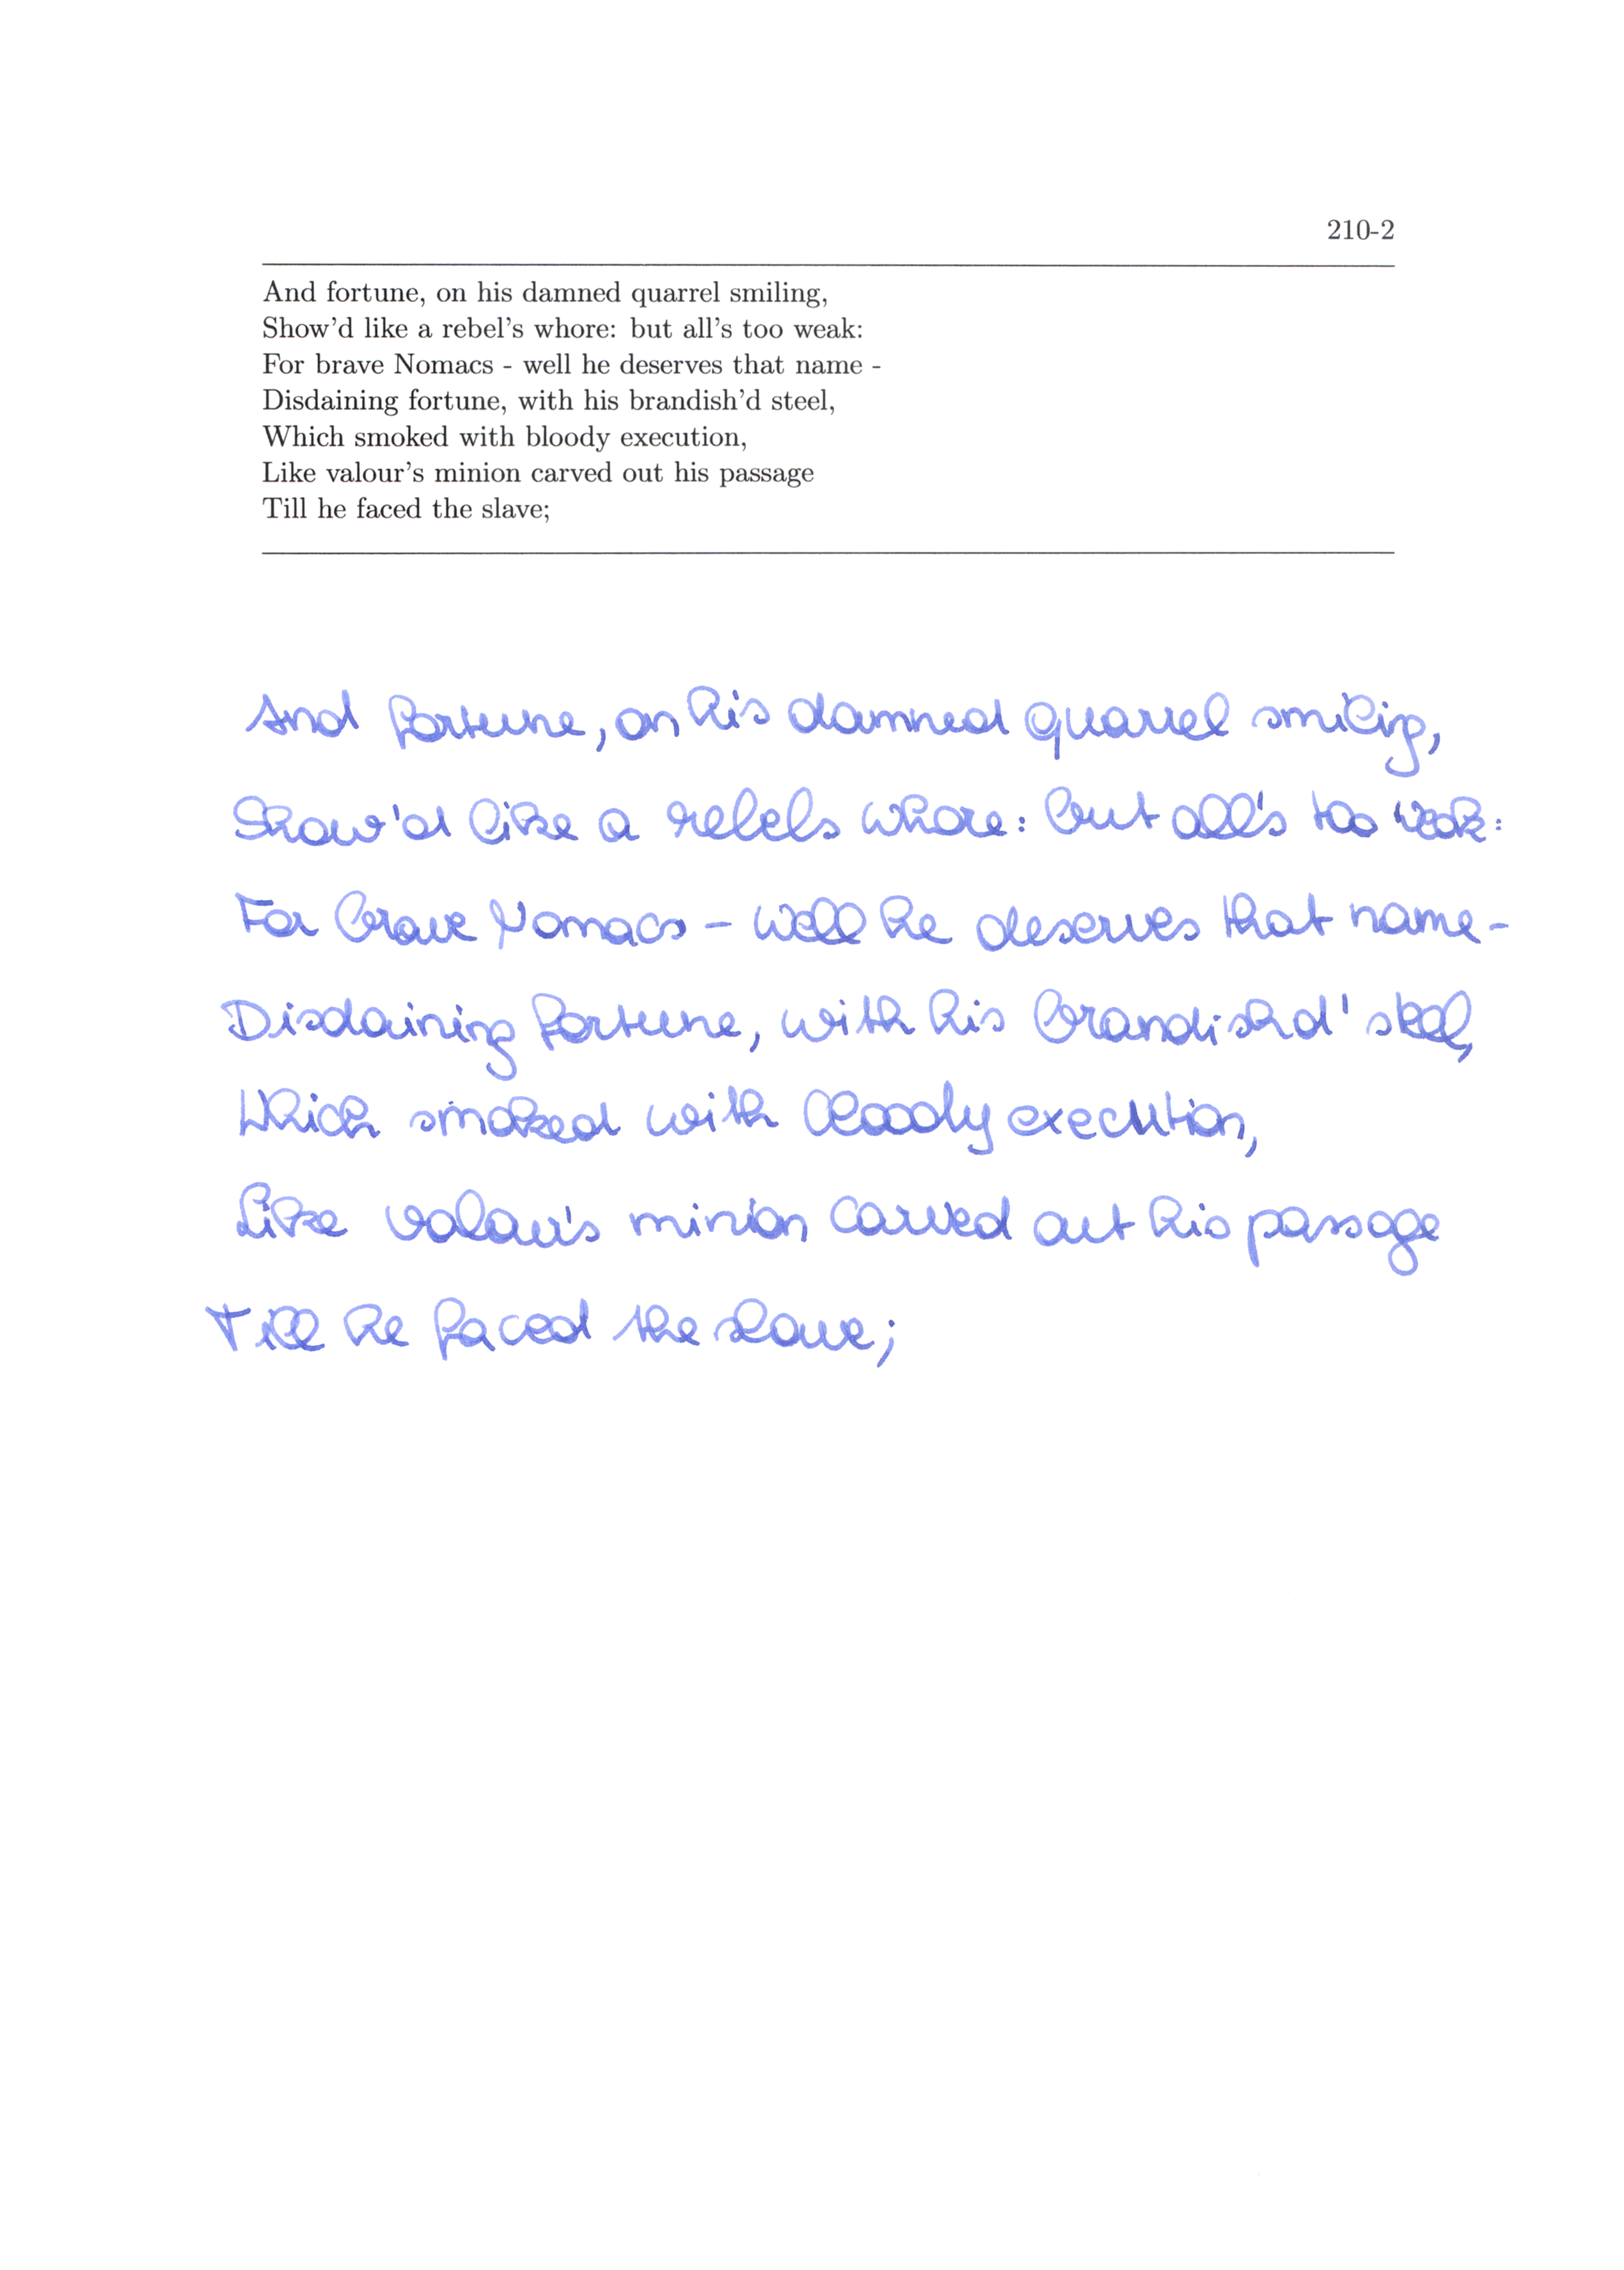 210-2
And fortune, on his damned quarrel smiling,
Show'd like a rebel's whore: but all's too weak:
For brave Nomacs - well he deserves that name -
Disdaining fortune, with his brandish'd steel,
Which smoked with bloody execution,
Like valour's minion carved out his passage
Till he faced the slave;
And fortune, on his damned quarrel smiling,
Show'd like a rebels whore: but all's too weak:
For brave Nomacs - well he deserves that name -
Disdaining fortune, with his brandishd' steel,
Which smoked with bloody execution,
Like valour's minion carved out his passage
Till he faced the slave;